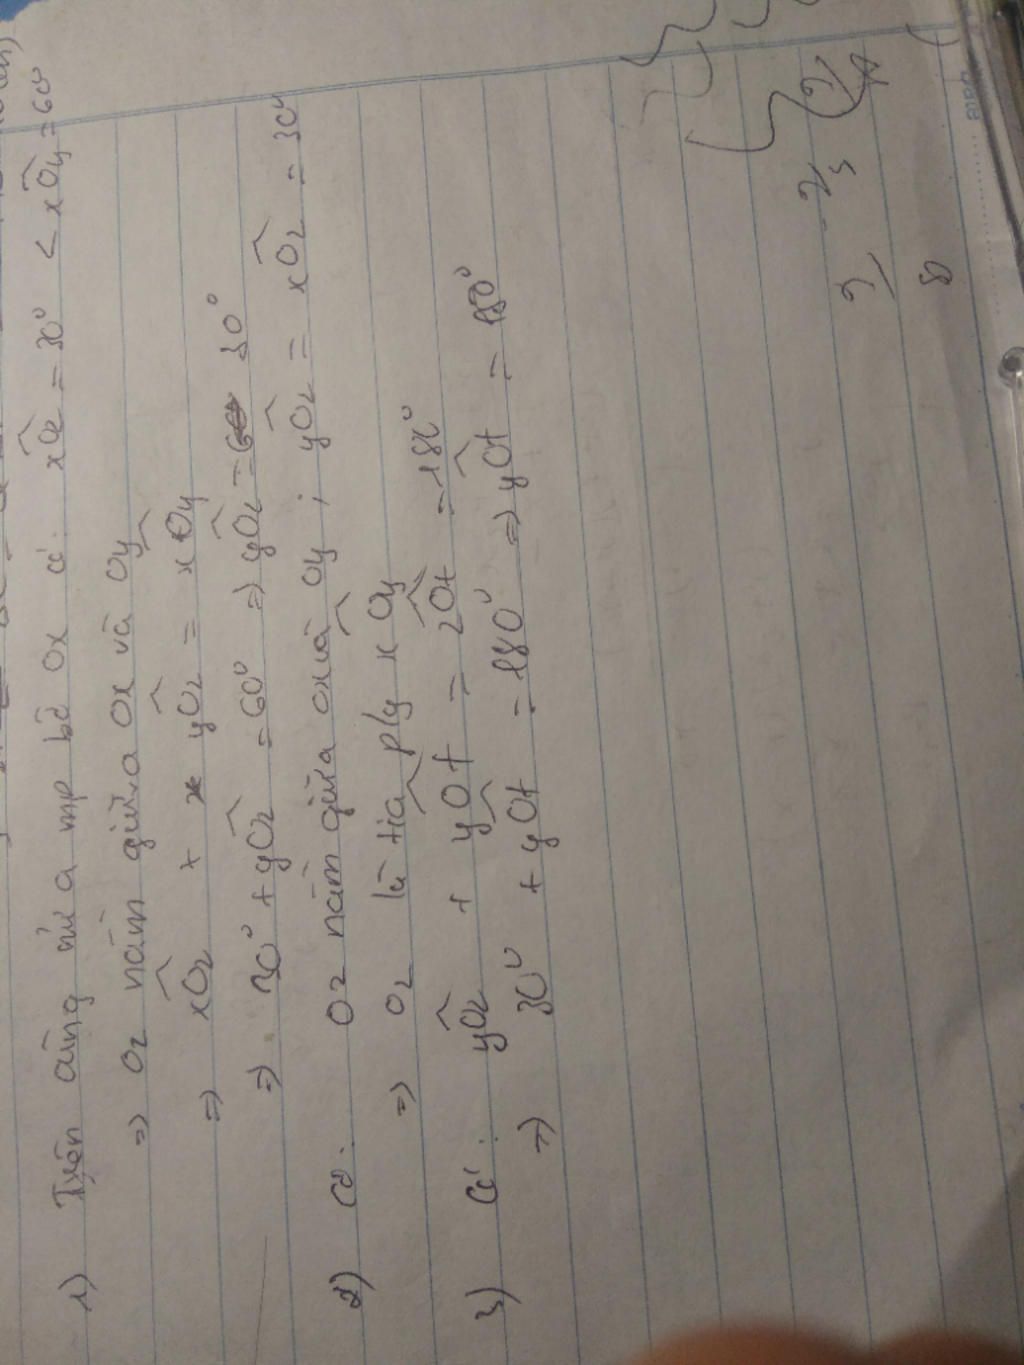 1) Trên cùng nửa mp bờ Ox có: xOz = 30° < xOy = 60°
=> Oz nằm giữa Ox và Oy
=> xOz + yOz = xOy
=> 30° + yOz = 60° => yOz = 30°
2) Có: Oz nằm giữa Ox và Oy ; yOz = xOz = 30°
=> Oz là tia p/g xOy
3) Có: yOz + yOt = zOt = 180°
=> 30° + yOt = 180° => yOt = 150°
Date